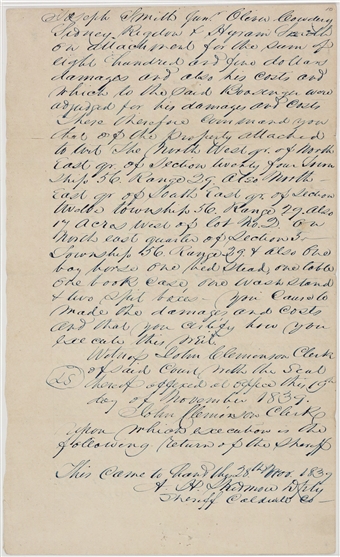 Joseph Smith Junr Oliver Cowdery
Sidney Rigdon & Hyrum Smith
on attachment for the sum of
eight hundred and five dollars
damages and also his costs and
which to the said Brassenger were
adjudged for his damages and costs
These therefore command you
that of the property attached
to wit The North West qr. of North
East qr. of Section twenty four Town
Ship 56. Range 29. Also North-
East qr of South East qr. of Section
twelve township 56. Range 29. Also
17 acres west of lot No. 2 on
North east quarter of Section 3-
Township 56 Range 29 & also One
bay horse one bed stead one table
One book case one wash stand
& two Spit boxes - you Cause to
made the damages and costs
and that you certify how you
execute this writ.
Witness John Clemonson Clerk
of said Court with the Seal
thereof affixed at office this
day of November 1839.
John Clemonson Clerk
upon which execution is the
following return of the Sheriff
This Came to hand 28th Nov. 1839
Dpty
Sheriff Caldwell Co-